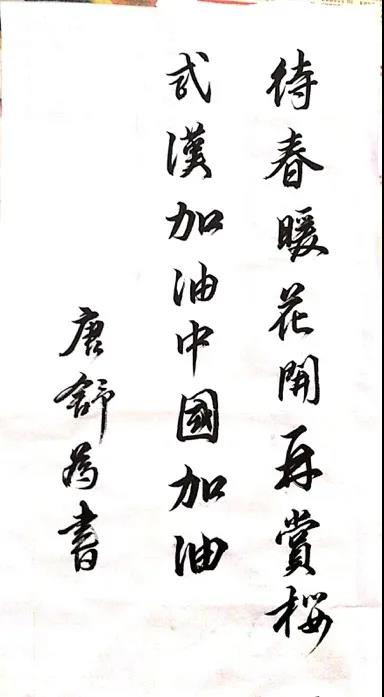 待春暖花開再賞桜
武漢加油中國加油
唐舒為書